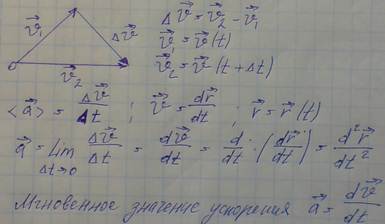 v⃗₁ Δv⃗ v⃗₂ O
Δv⃗ = v⃗₂ - v⃗₁
v⃗₁ = v⃗(t)
v⃗₂ = v⃗(t + Δt)
<a⃗> = Δv⃗/Δt ; v⃗ = dr⃗/dt ; r⃗ = r⃗(t)
a⃗ = lim Δt→0 Δv⃗/Δt = dv⃗/dt = d/dt · (dr⃗/dt) = d²r⃗/dt²
Мгновенное значение ускорения a⃗ = dv⃗/dt